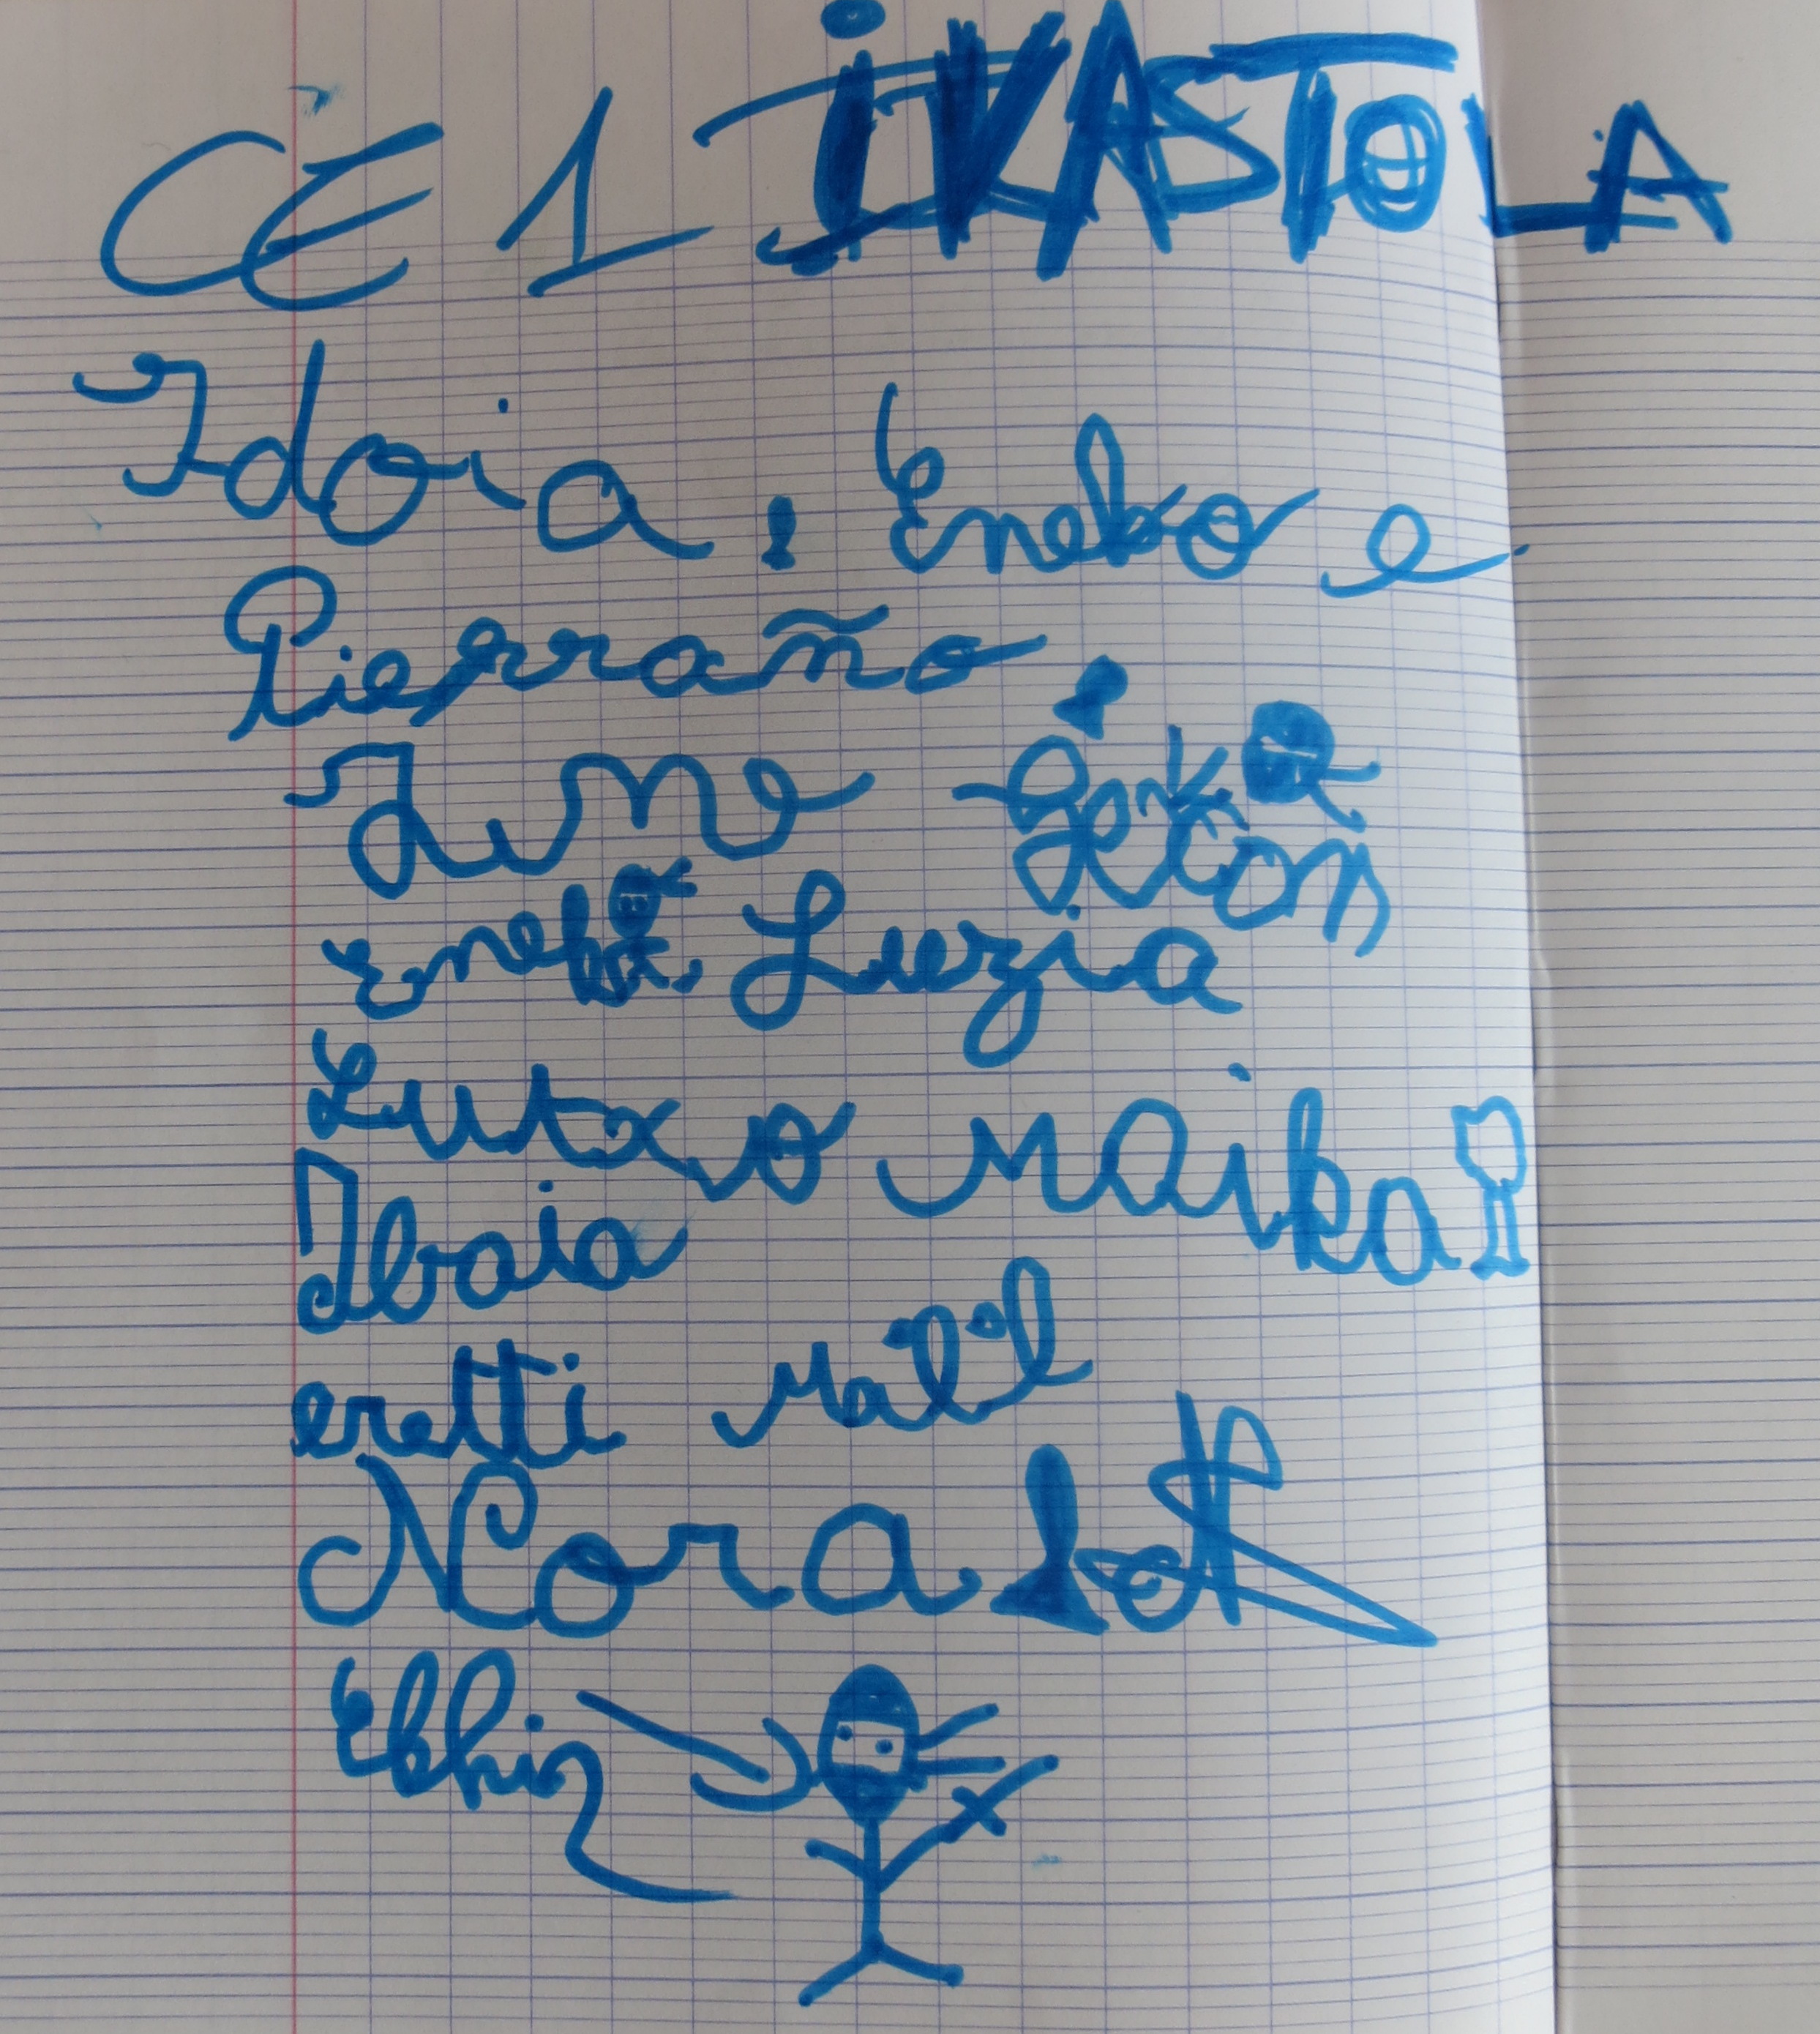 CE 1 iKASTOLA
Idoia, Eneko e
Pierraño,
June
Eneko, Luzia
Lutxo Maika
Ibaia
eretti Maïl
Nora
Ekhiz